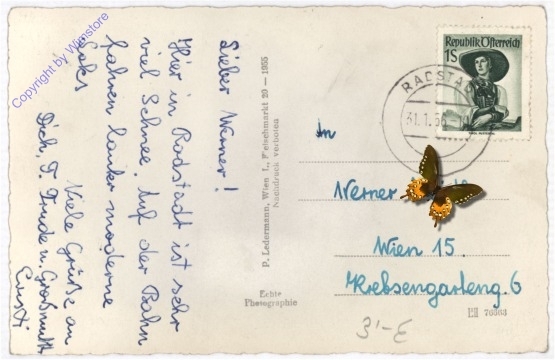 Lieber Werner!
Hier in Radstadt ist sehr
viel Schnee. Auf der Bahn
fahren lauter moderne
Loks
Viele Grüße an
Dich, T. Trude u. Großmutti
Gusti
P. Ledermann, Wien I., Fleischmarkt 20 – 1955
Nachdruck verboten
Echte
Photographie
Republik Österreich
1S
RADSTA
31.1.5
An
Werner
Wien 15.
Krebsengarteng. 6
76563
3'-E
Copyright by Wimstore